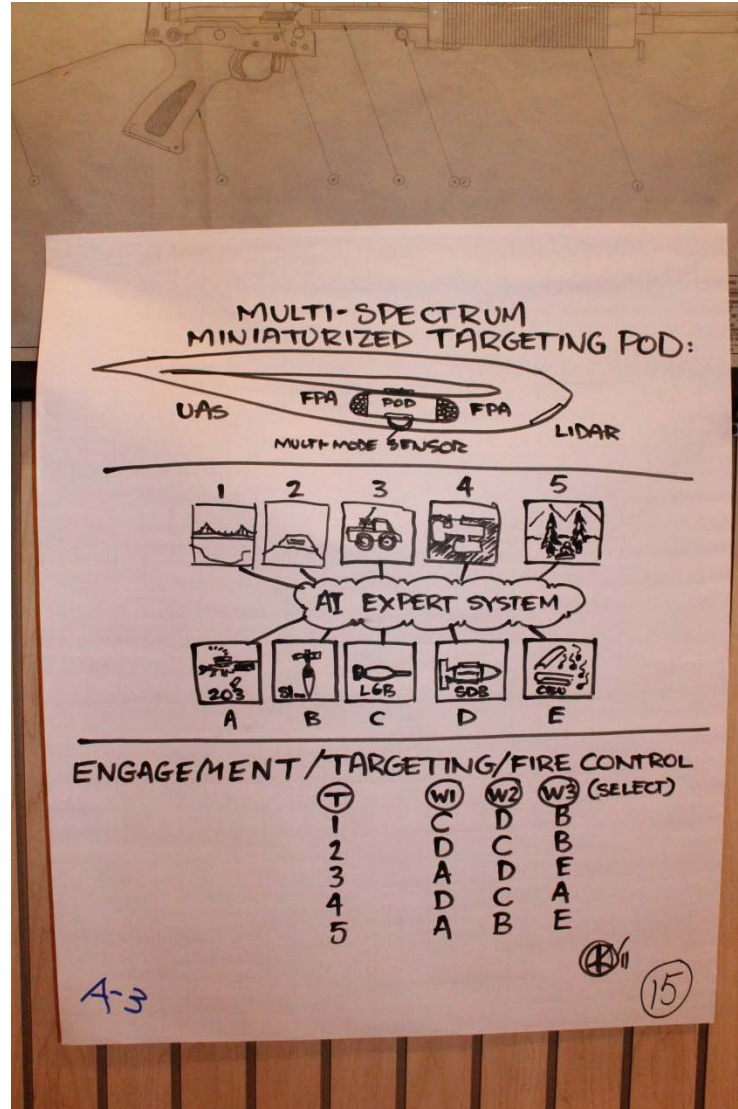 MULTI-SPECTRUM
MINIATURIZED TARGETING POD:
UAS FPA POD FPA
MULTI-MODE SENSOR LIDAR
1 2 3 4 5
AI EXPERT SYSTEM
203 81mm LGB SDB CBU
A B C D E
ENGAGEMENT/TARGETING/FIRE CONTROL
T W1 W2 W3 (SELECT)
1 C D B
2 D C B
3 A D E
4 D C A
5 A B E
A-3 15